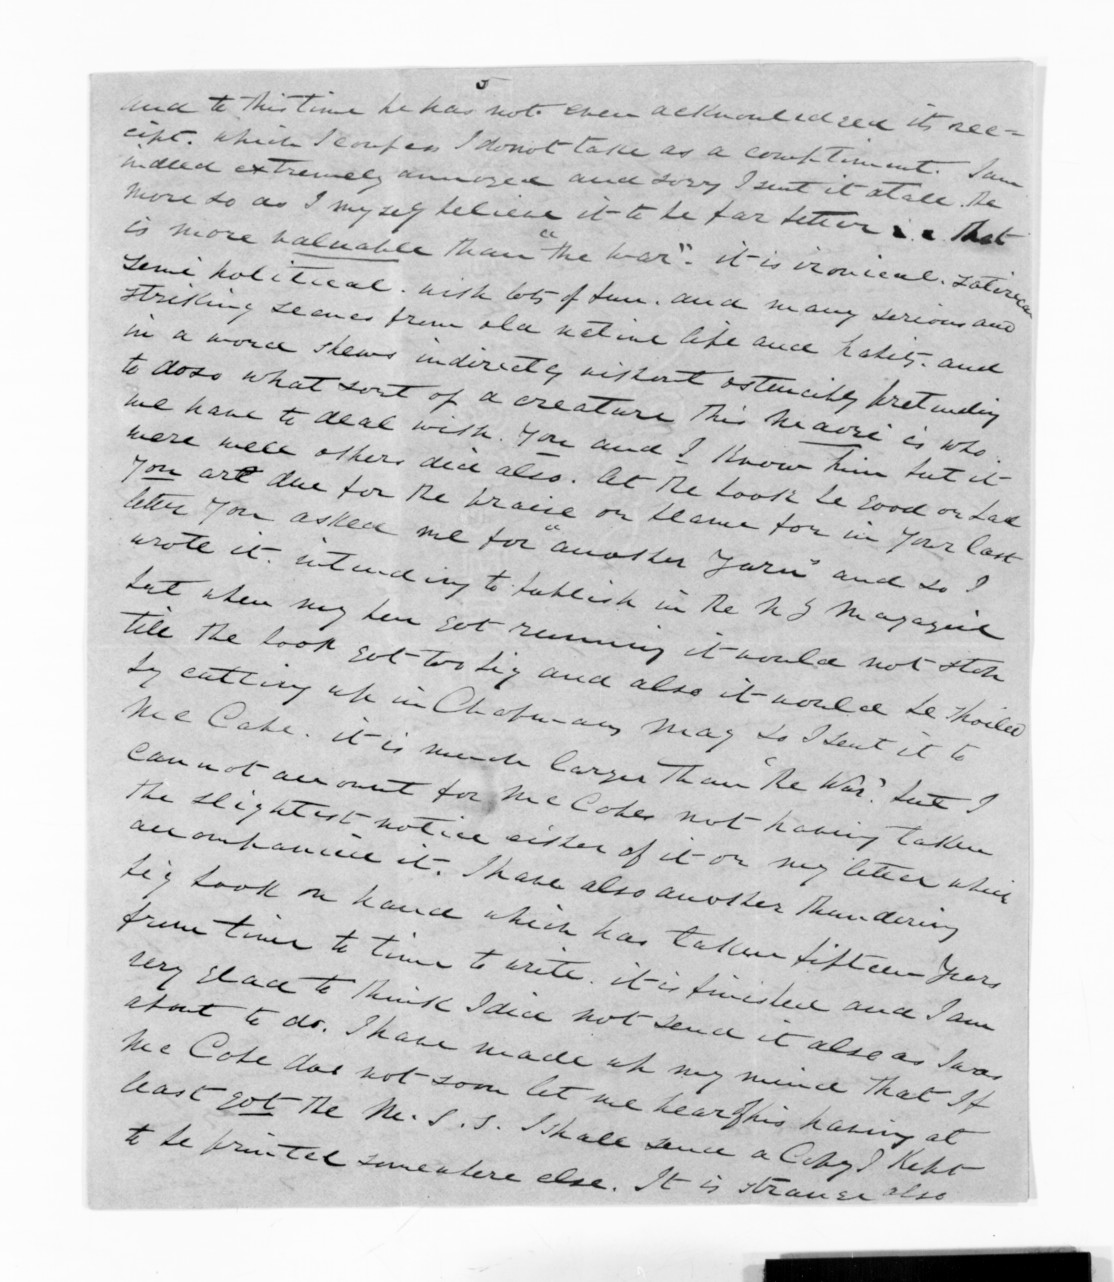 5
and to this time he has not even acknowledged its rec=
eipt. which I confess I do not take as a compliment. I am
indeed extremely annoyed and sorry I sent it atall. the
more so as I myself believe it to be far better i.e. that
is more valuable than "the war". it is ironical. satirical
semi political. with lots of fun. and many serious and
striking scenes from old native life and habits. and
in a word shews indirectly without ostencibly pretending
to doso what sort of a creature this Maori is who.
we have to deal with. You and I know him but it
were well others did also. At the book be good or bad
You are due for the praise or blame for in your last
letter You asked me for "another Yarn" and so I
wrote it. intending to publish in the N Z Magazine
but when my pen got running it would not stop
till the book got too big and also it would be spoiled
by cutting up in Chapmans Mag so I sent it to
McCabe. it is much larger than "the War". but I
cannot account for McCabes not having taken
the slightest notice either of it or my letter which
accompanied it. I have also another thundering
big book on hand which has taken fifteen Years
from time to time to write. it is finished and I am
very glad to think I did not send it also as I was
about to do. I have made up my mind that If
McCabe doe not soon let me hear of his having at
least got the M.S.S. I shall send a Copy I Kept
to be printed somewhere else. It is strange also